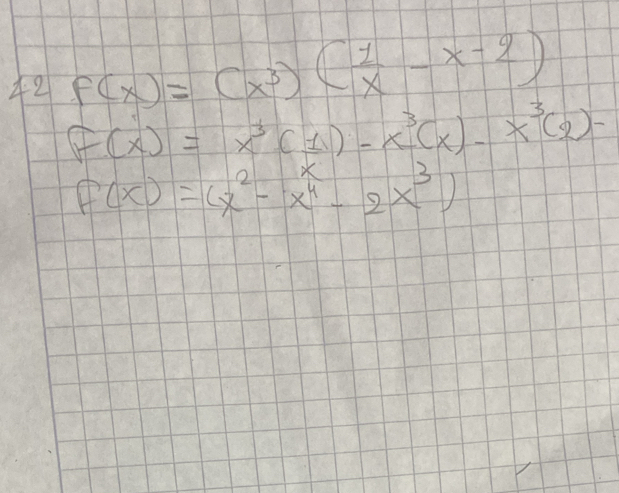 12 F(x) = (x³) (1/x - x - 2)
F(x) = x³ (1/x) - x³(x) - x³(2) -
F(x) = (x² - x⁴ - 2x³)